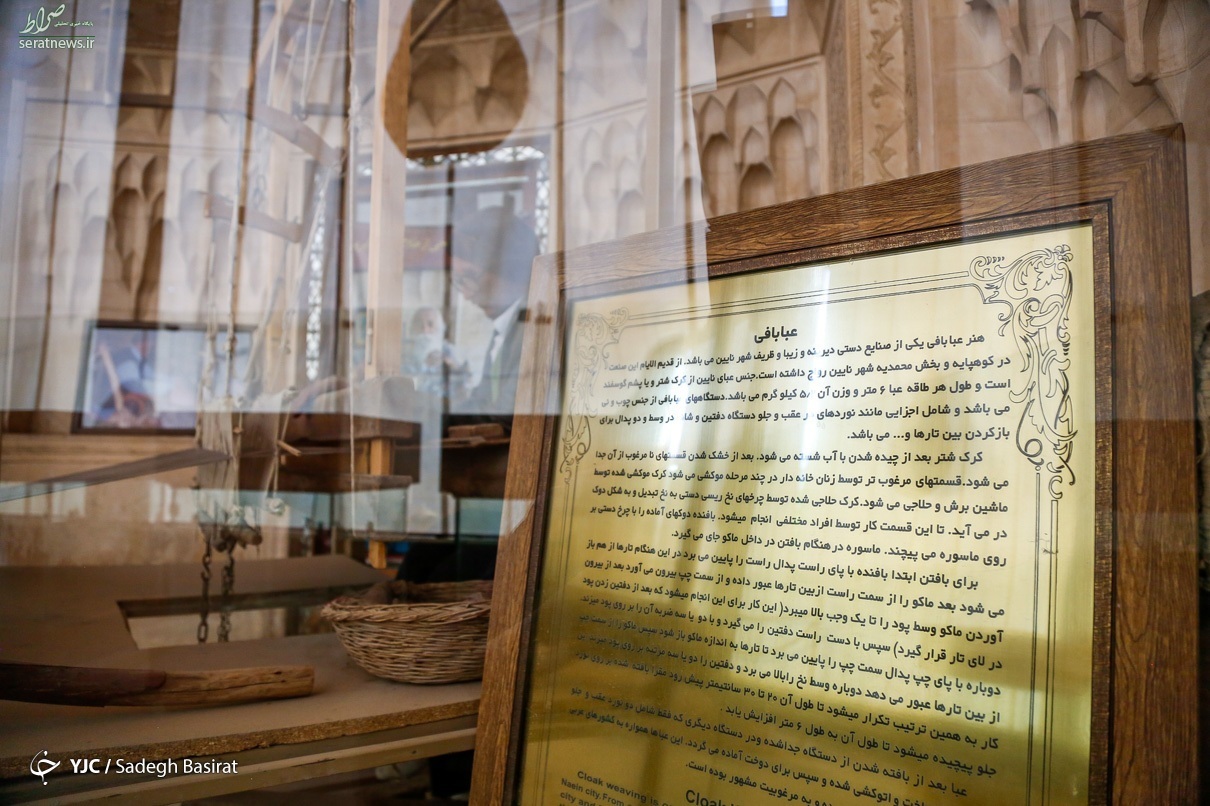 صراط
پایگاه خبری تحلیلی
seratnews.ir
عبابافی
هنر عبابافی یکی از صنایع دستی و زیبا و ظریف شهر نایین می باشد. از قدیم الایام این صنعت
در کوهپایه و بخش محمدیه شهر نایین رواج داشته است.جنس عبای نایین از کرک شتر و یا پشم گوسفند
است و طول هر طاقه عبا ۶ متر و وزن آن کیلو گرم می باشد.دستگاههای عبابافی از جنس چوب و نی
می باشد و شامل اجزایی مانند نوردهای عقب و جلو دستگاه دفتین و در وسط و دو پدال برای
بازکردن بین تارها و... می باشد.
کرک شتر بعد از چیده شدن با آب شسته می شود. بعد از خشک شدن قسمتهای نا مرغوب از آن جدا
می شود.قسمتهای مرغوب تر توسط زنان خانه دار در چند مرحله موکشی می شود کرک موکشی شده توسط
ماشین برش و حلاجی می شود.کرک حلاجی شده توسط چرخهای نخ ریسی دستی به نخ تبدیل و به شکل دوک
در می آید. تا این قسمت کار توسط افراد مختلفی انجام میشود. بافنده دوکهای آماده را با چرخ دستی بر
روی ماسوره می پیچند. ماسوره در هنگام بافتن در داخل ماکو جای می گیرد.
برای بافتن ابتدا بافنده با پای راست پدال راست را پایین می برد در این هنگام تارها از هم باز
می شود بعد ماکو را از سمت راست ازبین تارها عبور داده و از سمت چپ بیرون می آورد بعد از بیرون
آوردن ماکو وسط پود را تا یک وجب بالا میبرد( این کار برای این انجام میشود که بعد از دفتین زدن پود
در لای تار قرار گیرد) سپس با دست راست دفتین را می گیرد و با دو یا سه ضربه آن را بر روی پود میزند.
دوباره با پای چپ پدال سمت چپ را پایین می برد تا تارها به اندازه ماکو باز شود سپس ماکو را از سمت چپ
از بین تارها عبور می دهد دوباره وسط نخ رابالا می برد و دفتین را دو یا سه مرتبه بر روی پود میزند.
کار به همین ترتیب تکرار میشود تا طول آن ۲۰ تا ۳۰ سانتیمتر پیش رود بافته شده بر روی نورد
جلو پیچیده میشود تا طول آن به طول ۶ متر افزایش یابد .
عبا بعد از بافته شدن از دستگاه جداشده ودر دستگاه دیگری که فقط شامل دو نورد عقب و جلو
و اتوکشی شده و سپس برای دوخت آماده می گردد. این عباها همواره به کشورهای عربی
و به مرغوبیت مشهور بوده است.
Cloak weaving is
Naein city.From
city and
YJC / Sadegh Basirat